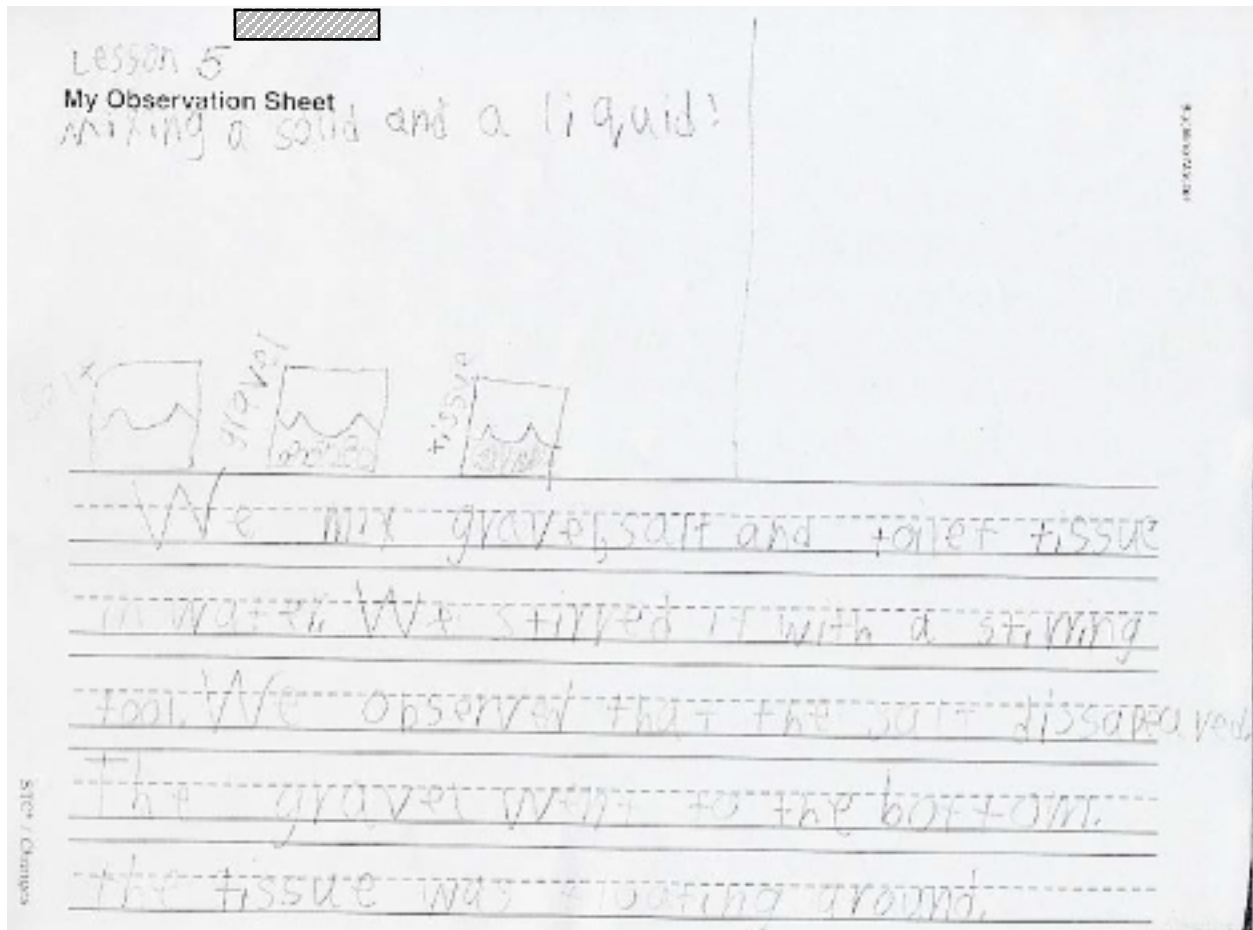 Lesson 5
My Observation Sheet
Mixing a solid and a liquid!
salt
gravel
tissue
We mix gravel, salt and toilet tissue
in water. We stirred it with a stirring
tool. We observed that the salt dissapeared.
The gravel went to the bottom.
the tissue was floating around.
STC / Changes